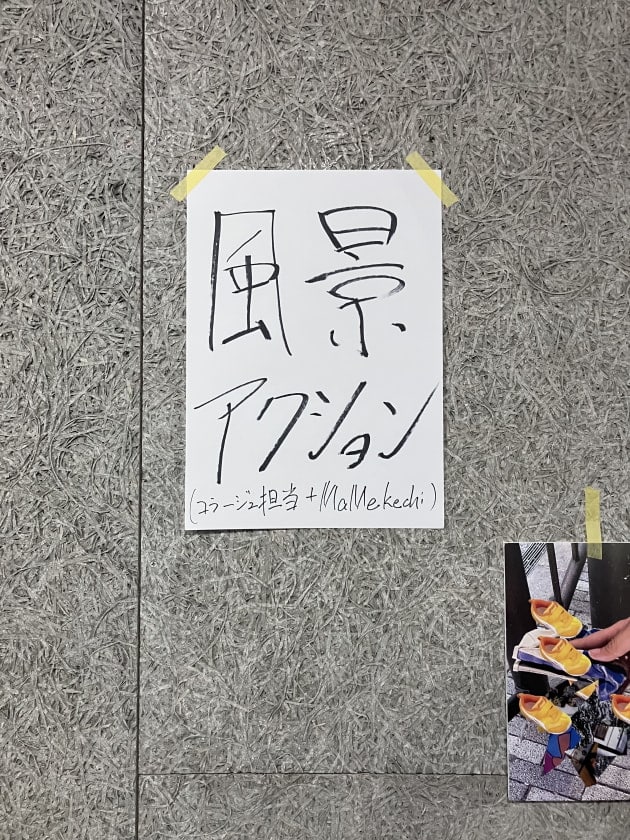 風景
アクション
(コラージュ担当+MaMekechi)